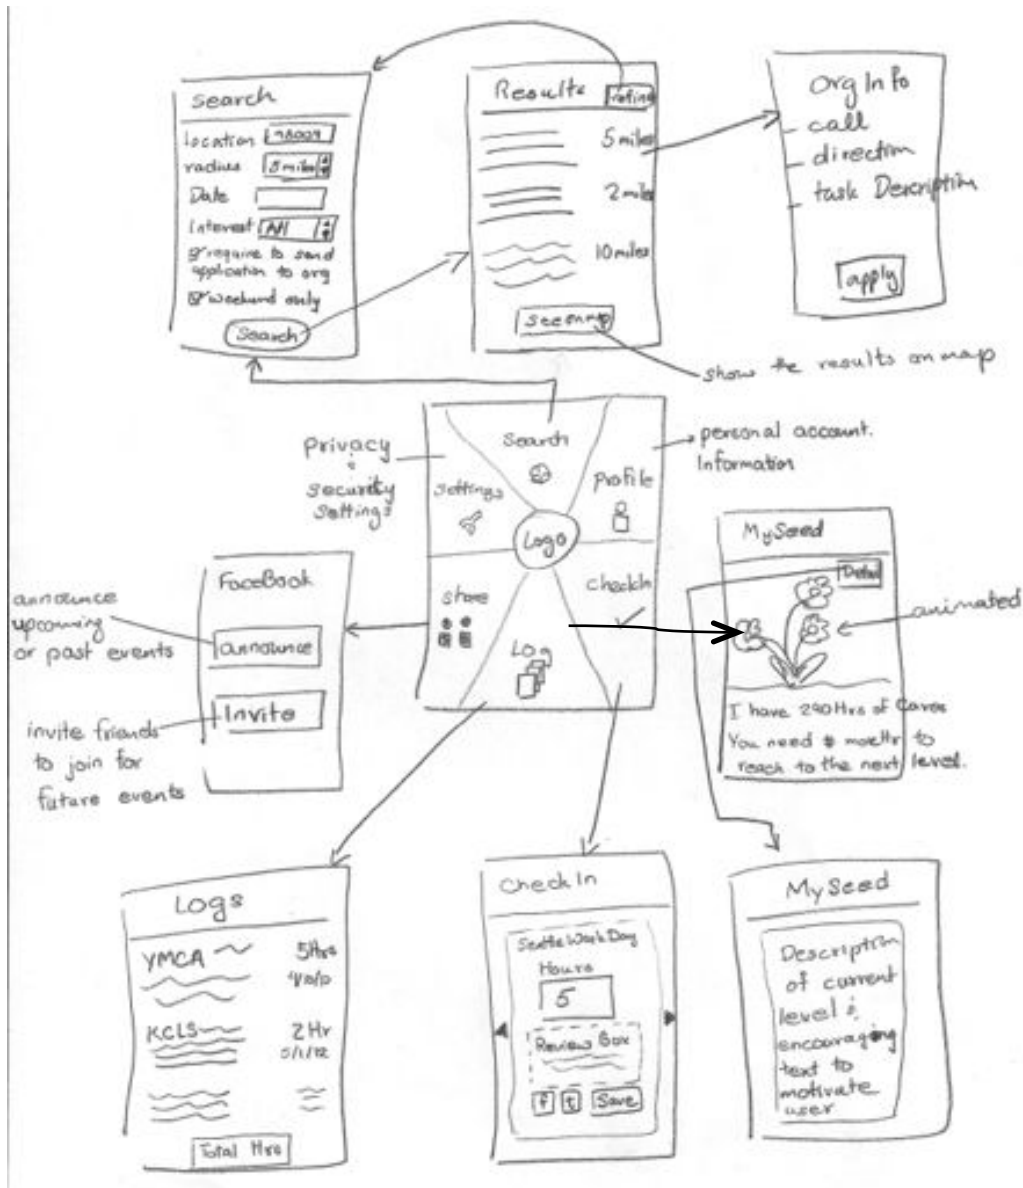 Search
Location 98009
radius 5 miles
Date
Interest All
require to send
application to org
weekend only
Search
Results refine
5 miles
2 miles
10 miles
see on map
show the results on map
Org Info
call
direction
task Description
apply
Privacy
&
security
settings
Search
Settings
Profile
Logo
share
CheckIn
Log
personal account.
Information
FaceBook
announce
Invite
announce
upcoming
or past events
invite friends
to join for
future events
MySeed
Detail
animated
I have 290 Hrs of
You need more Hr to
reach to the next level.
Logs
YMCA 5Hrs
KCLS 2 Hr
5/1/12
Total Hrs
CheckIn
Seattle Work Day
Hours
5
Review Box
f t Save
My Seed
Description
of current
level &
encouraging
text to
motivate
user